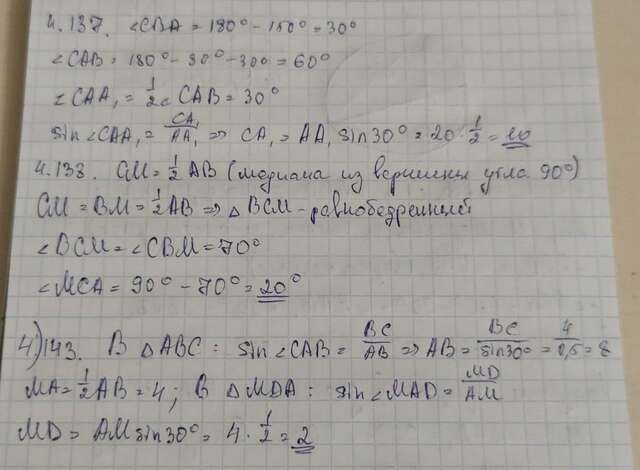 4.137. ∠CBA = 180° - 150° = 30°
∠CAB = 180° - 90° - 30° = 60°
∠CAA₁ = 1/2 ∠CAB = 30°
sin∠CAA₁ = CA₁/AA₁ ⇒ CA₁ = AA₁ sin30° = 20 · 1/2 = 10
4.138. CM = 1/2 AB (медиана из вершины угла 90°)
CM = BM = 1/2 AB ⇒ △BCM - равнобедренный
∠BCM = ∠CBM = 70°
∠MCA = 90° - 70° = 20°
4)143. В △ABC: sin∠CAB = BC/AB ⇒ AB = BC/sin30° = 4/0,5 = 8
MA = 1/2 AB = 4; В △MDA: sin∠MAD = MD/AM
MD = AM sin30° = 4 · 1/2 = 2